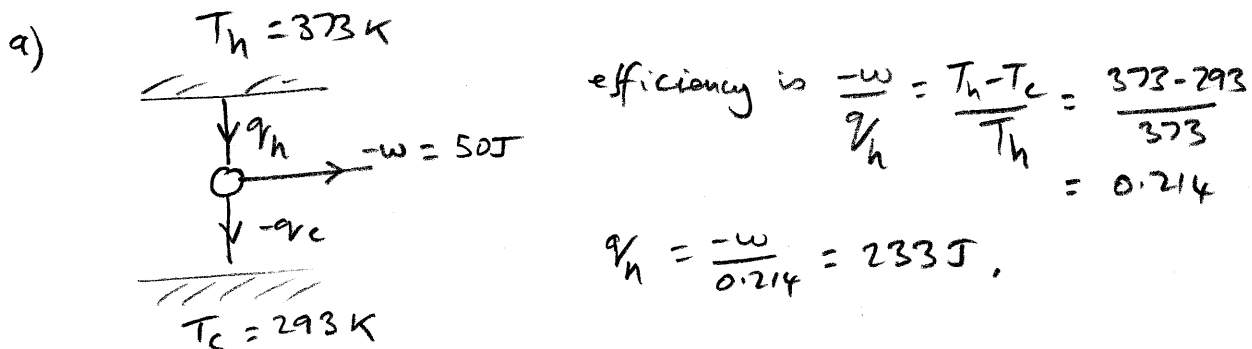 a)
T_h = 373 K
q_h
-w = 50J
-q_c
T_c = 293 K
efficiency is -w/q_h = (T_h - T_c)/T_h = (373-293)/373
= 0.214
q_h = -w/0.214 = 233 J.